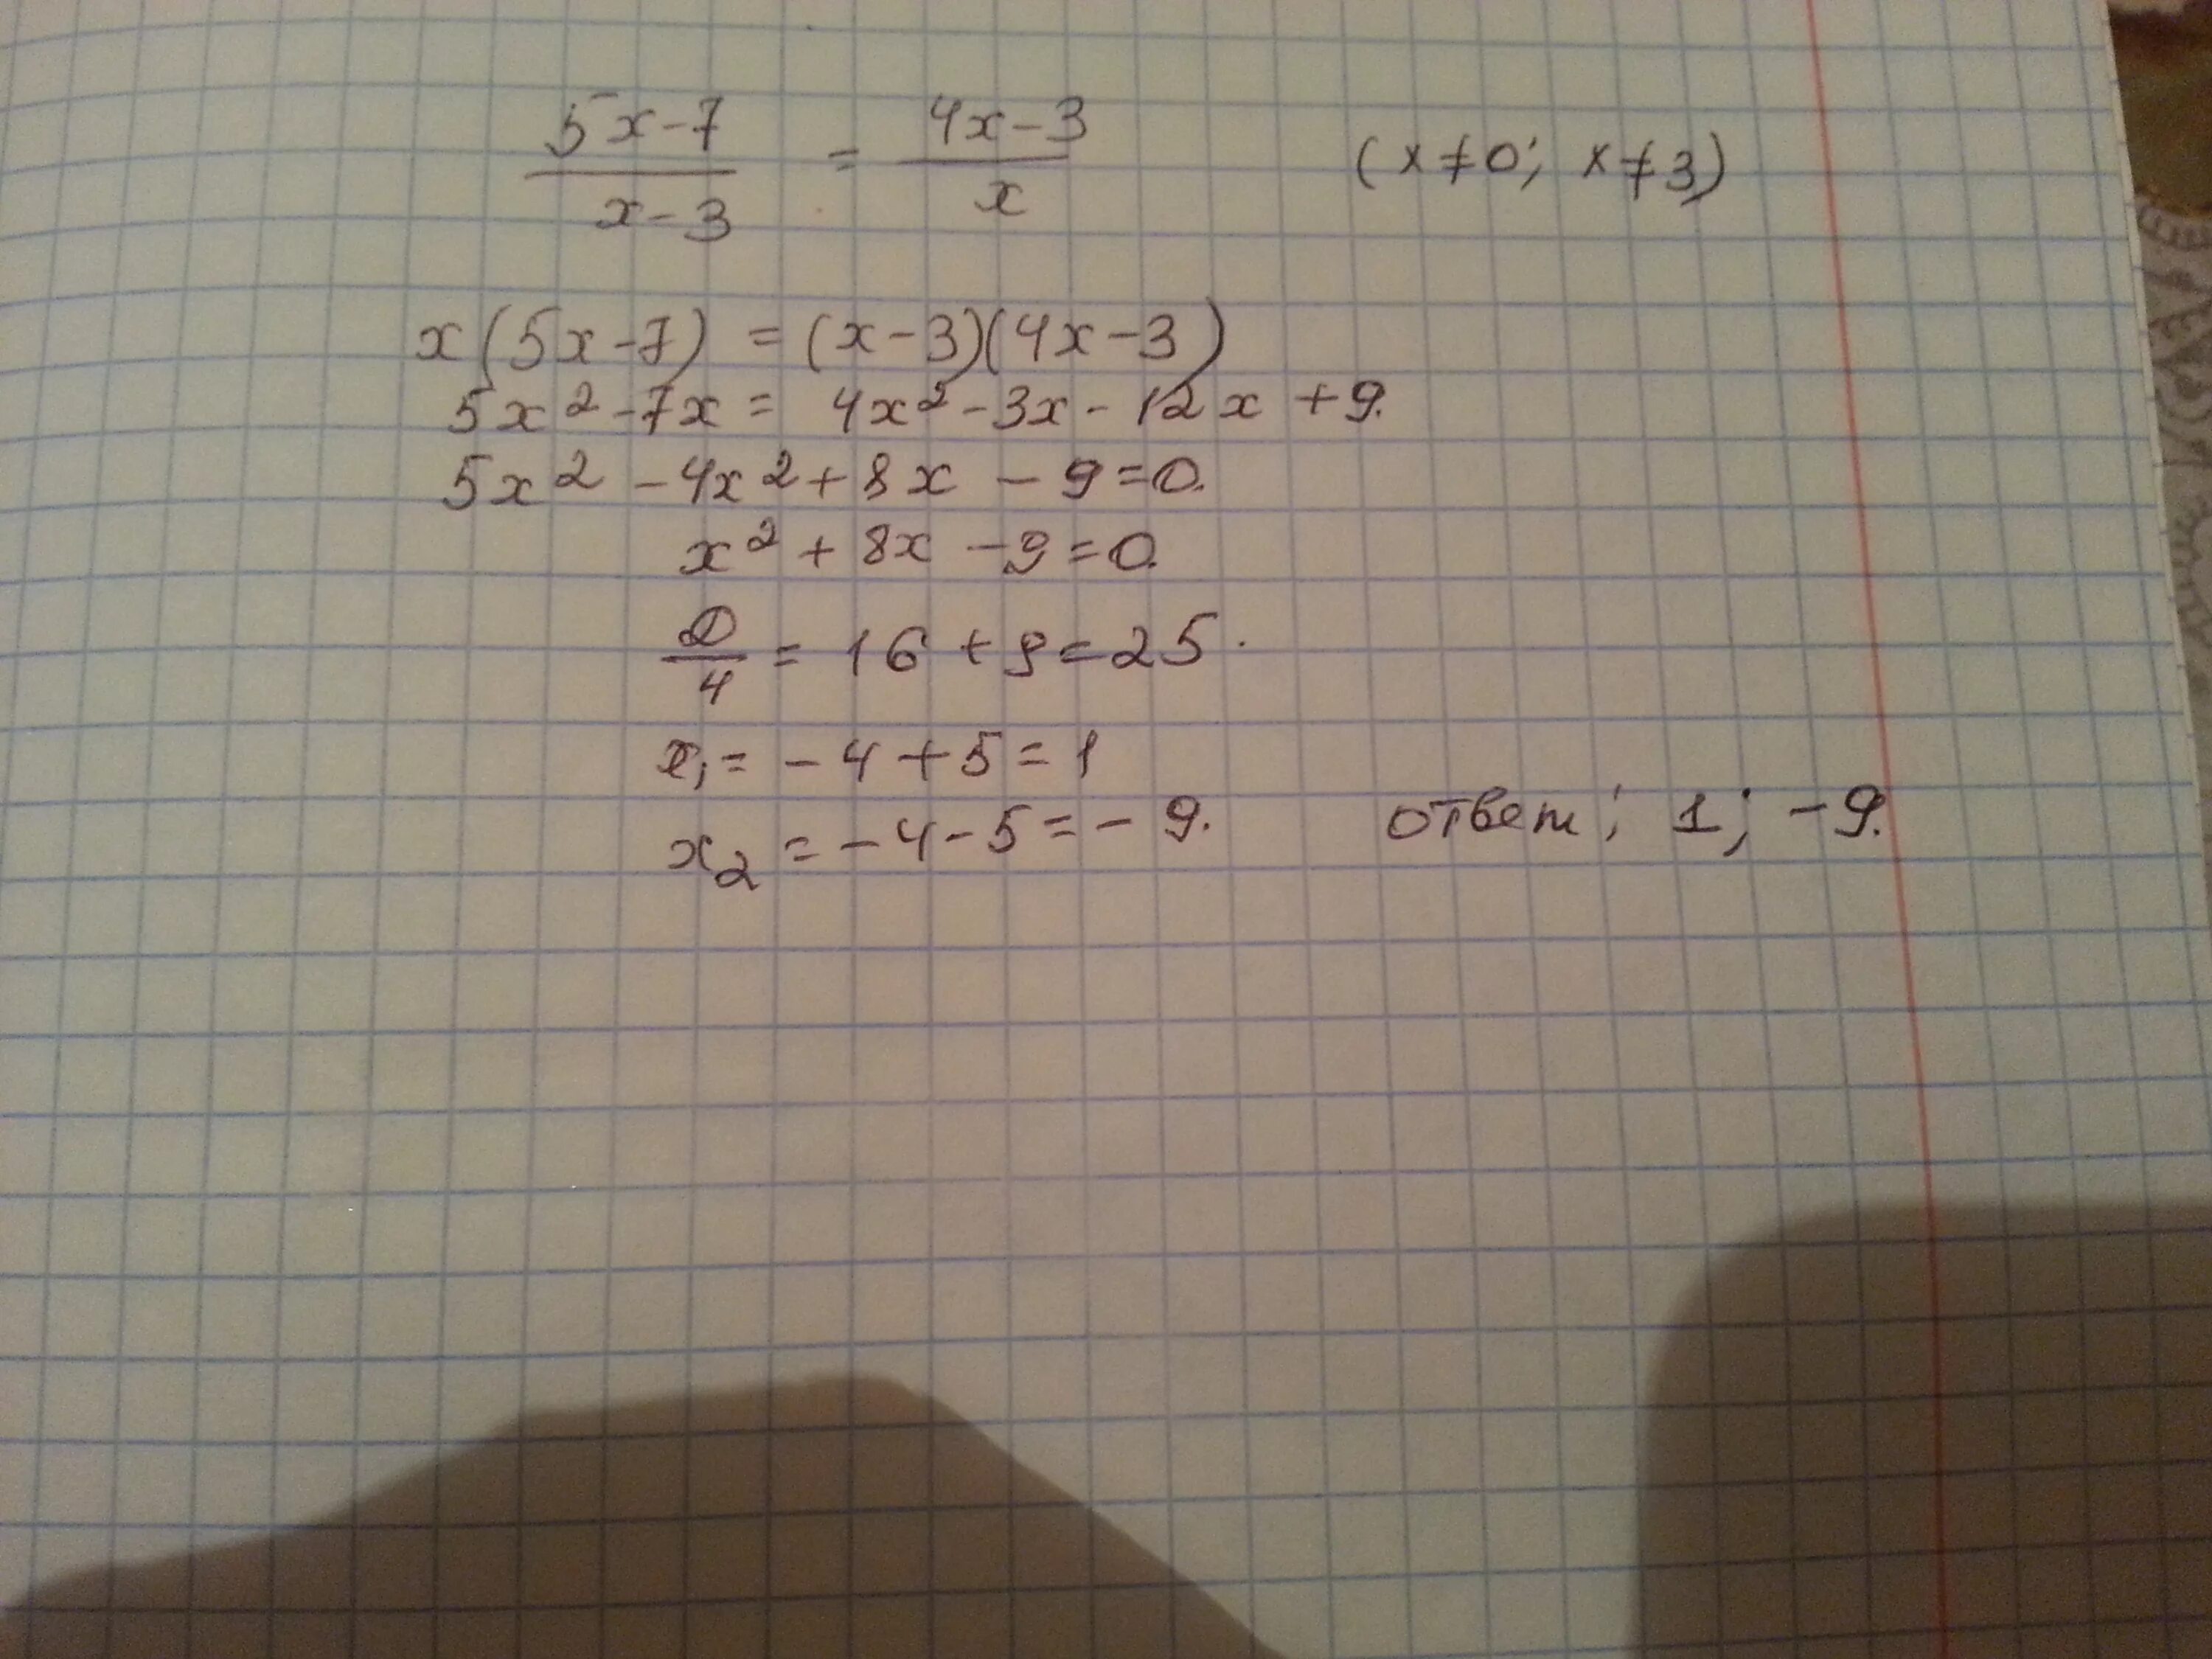 (5x-7)/(x-3) = (4x-3)/x (x≠0; x≠3)
x(5x-7) = (x-3)(4x-3)
5x²-7x = 4x²-3x-12x+9.
5x²-4x²+8x-9=0.
x²+8x-9=0.
D/4 = 16+9=25.
x₁ = -4+5=1
x₂ = -4-5=-9. ответ; 1; -9.